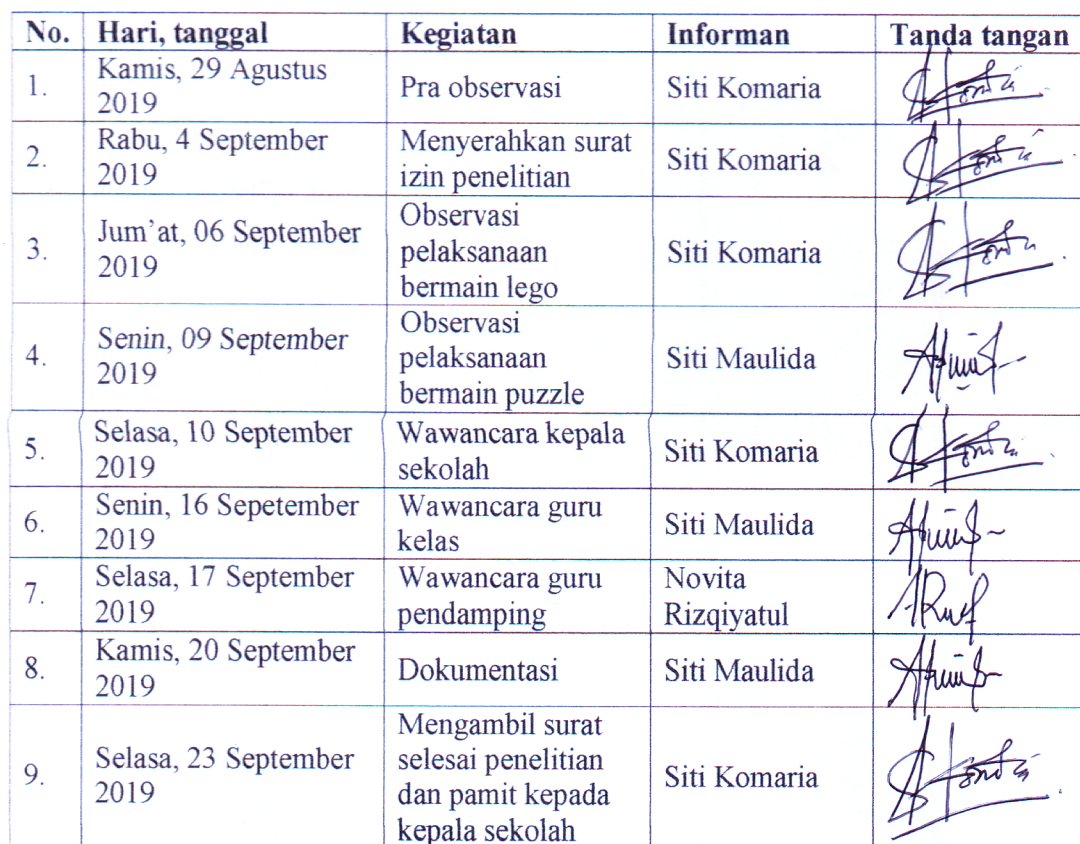 No. Hari, tanggal Kegiatan Informan Tanda tangan
1. Kamis, 29 Agustus 2019 Pra observasi Siti Komaria
2. Rabu, 4 September 2019 Menyerahkan surat izin penelitian Siti Komaria
3. Jum'at, 06 September 2019 Observasi pelaksanaan bermain lego Siti Komaria
4. Senin, 09 September 2019 Observasi pelaksanaan bermain puzzle Siti Maulida
5. Selasa, 10 September 2019 Wawancara kepala sekolah Siti Komaria
6. Senin, 16 Sepetember 2019 Wawancara guru kelas Siti Maulida
7. Selasa, 17 September 2019 Wawancara guru pendamping Novita Rizqiyatul
8. Kamis, 20 September 2019 Dokumentasi Siti Maulida
9. Selasa, 23 September 2019 Mengambil surat selesai penelitian dan pamit kepada kepala sekolah Siti Komaria